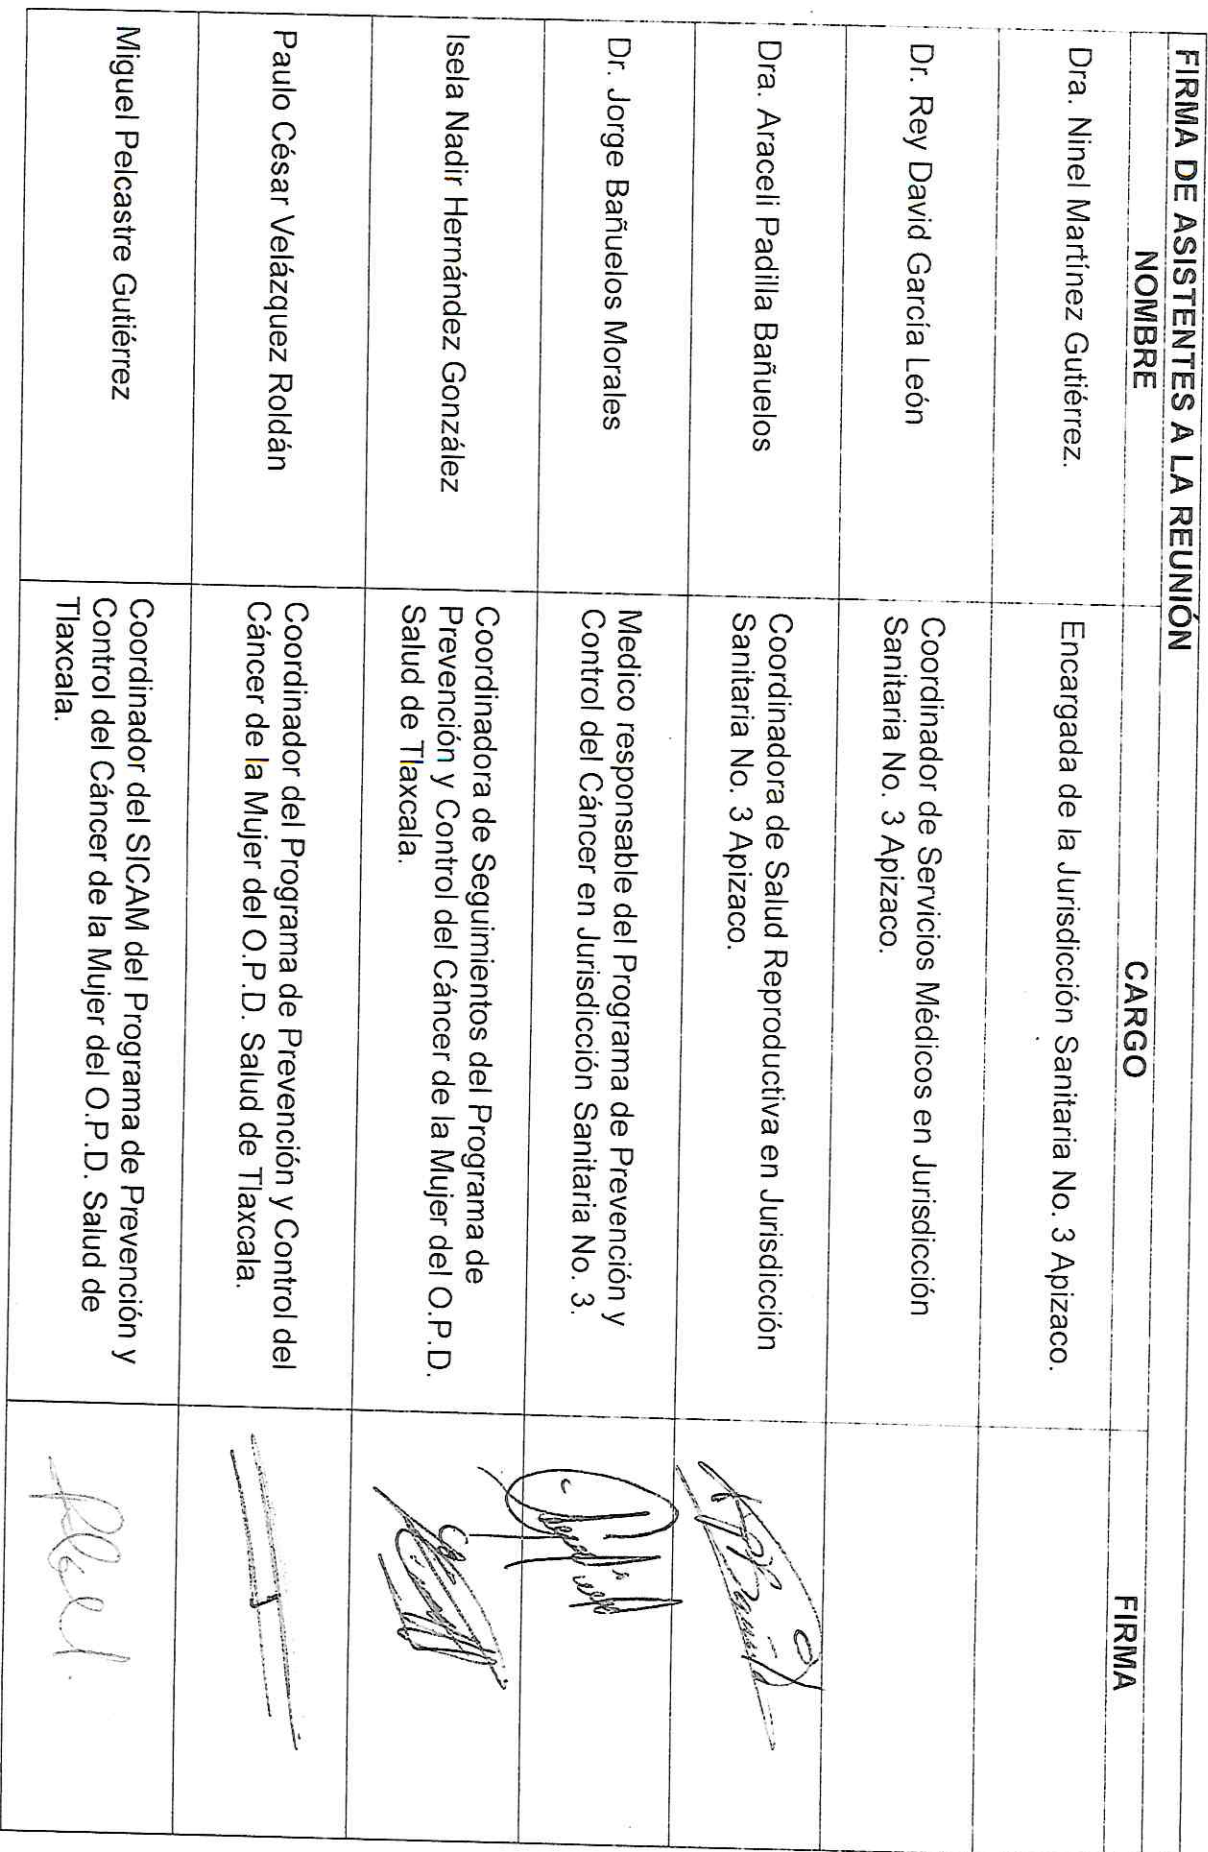 FIRMA DE ASISTENTES A LA REUNIÓN
NOMBRE
CARGO
FIRMA
Dra. Ninel Martínez Gutiérrez.
Encargada de la Jurisdicción Sanitaria No. 3 Apizaco.
Dr. Rey David García León
Coordinador de Servicios Médicos en Jurisdicción
Sanitaria No. 3 Apizaco.
Dra. Araceli Padilla Bañuelos
Coordinadora de Salud Reproductiva en Jurisdicción
Sanitaria No. 3 Apizaco.
Dr. Jorge Bañuelos Morales
Medico responsable del Programa de Prevención y
Control del Cáncer en Jurisdicción Sanitaria No. 3.
Isela Nadir Hernández González
Coordinadora de Seguimientos del Programa de
Prevención y Control del Cáncer de la Mujer del O.P.D.
Salud de Tlaxcala.
Paulo César Velázquez Roldán
Coordinador del Programa de Prevención y Control del
Cáncer de la Mujer del O.P.D. Salud de Tlaxcala.
Miguel Pelcastre Gutiérrez
Coordinador del SICAM del Programa de Prevención y
Control del Cáncer de la Mujer del O.P.D. Salud de
Tlaxcala.